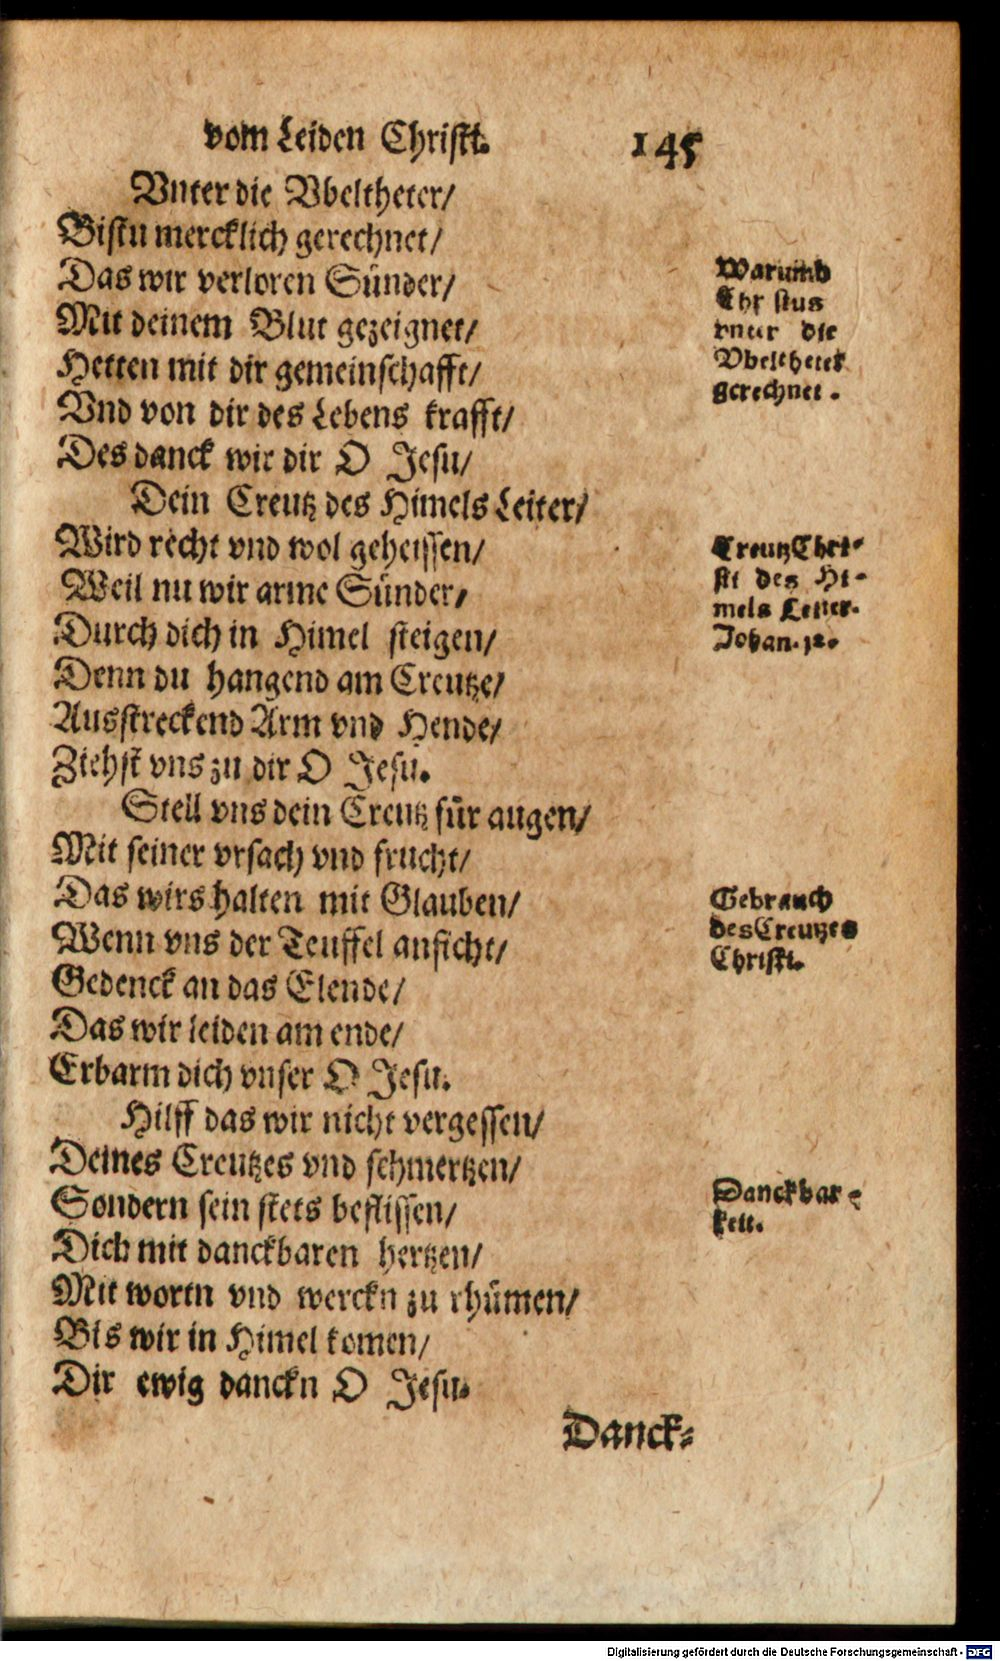 vom Leiden Christi. 145
Vnter die Vbeltheter/
Bistu mercklich gerechnet/
Das wir verloren Sünder/
Mit deinem Blut gezeignet/
Hetten mit dir gemeinschafft/
Vnd von dir des Lebens krafft/
Des danck wir dir O Jesu/
Warumb
Christus
vnter die
Vbelthetet
gerechnet.
Dein Creutz des Himels Leiter/
Wird recht vnd wol geheissen/
Weil nu wir arme Sünder/
Durch dich in Himel steigen/
Denn du hangend am Creutze/
Ausstreckend Arm vnd Hende/
Ziehst vns zu dir O Jesu.
Creutz Chri-
sti des Hi-
mels Leiter.
Johan. 12.
Stell vns dein Creutz für augen/
Mit seiner vrsach vnd frucht/
Das wirs halten mit Glauben/
Wenn vns der Teuffel anficht/
Gedenck an das Elende/
Das wir leiden am ende/
Erbarm dich vnser O Jesu.
Gebrauch
des Creutzes
Christi.
Hilff das wir nicht vergessen/
Deines Creutzes vnd schmertzen/
Sondern sein stets beflissen/
Dich mit danckbaren hertzen/
Mit wortn vnd werckn zu rhümen/
Bis wir in Himel komen/
Dir ewig danckn O Jesu.
Danckbar-
keit.
Danck-
Digitalisierung gefördert durch die Deutsche Forschungsgemeinschaft - DFG